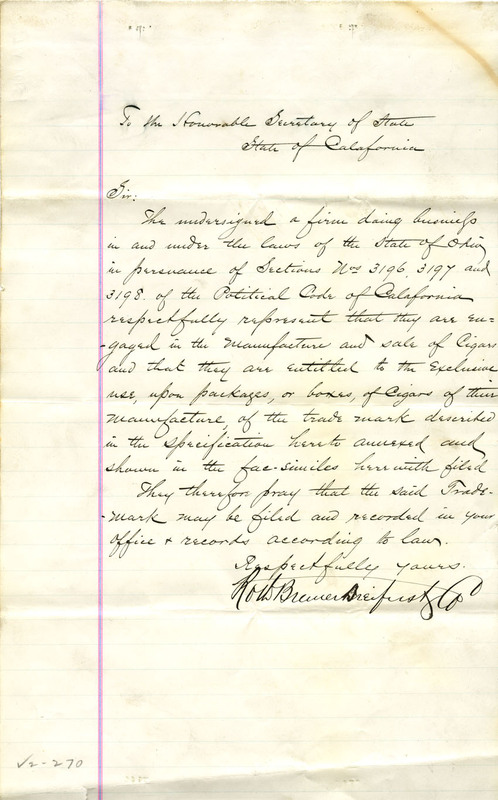 To the Honorable Secretary of State
State of Calafornia
Sir:
The undersigned a firm doing business
in and under the laws of the State of Ohio
in persuance of Sections Nos 3196, 3197 and
3198. of the Political Code of Calafornia
respectfully represent that they are en=
gaged in the manufacture and sale of Cigars
and that they are entitled to the Exclusive
use, upon packages, or boxes, of Cigars of their
manufacture, of the trade mark described
in the specification hereto annexed and
shown in the fac-similes herewith filed
They therefore pray that the said Trade-
-mark may be filed and recorded in your
office & records according to law.
Respectfully yours.
Roth Bremer & Co
V2-270